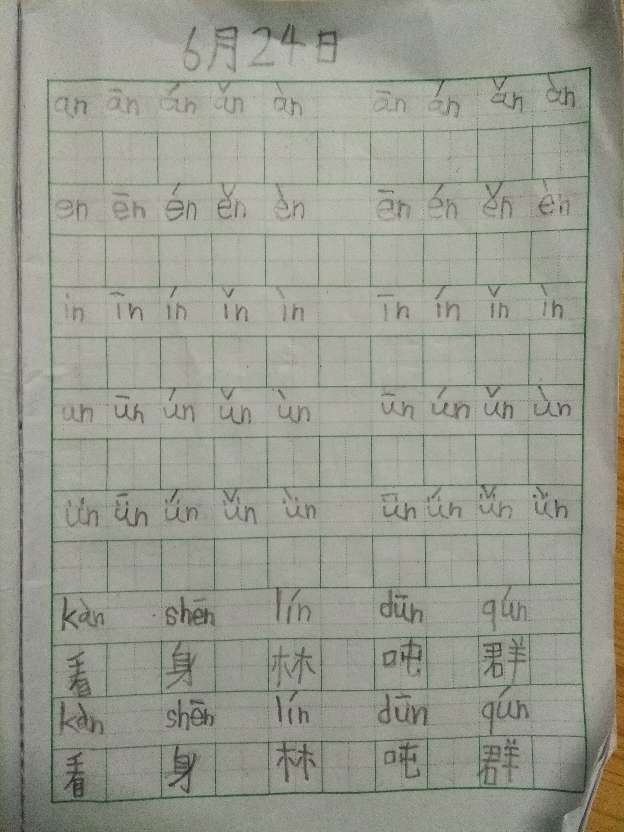 6月24日
an ān án ǎn àn ān án ǎn àn
en ēn én ěn èn ēn én ěn èn
in īn ín ǐn ìn īn ín ǐn ìn
un ūn ún ǔn ùn ūn ún ǔn ùn
ün ǖn ǘn ǚn ǜn ǖn ǘn ǚn ǜn
kàn shēn lín dūn qún
看 身 林 吨 群
kàn shēn lín dūn qún
看 身 林 吨 群